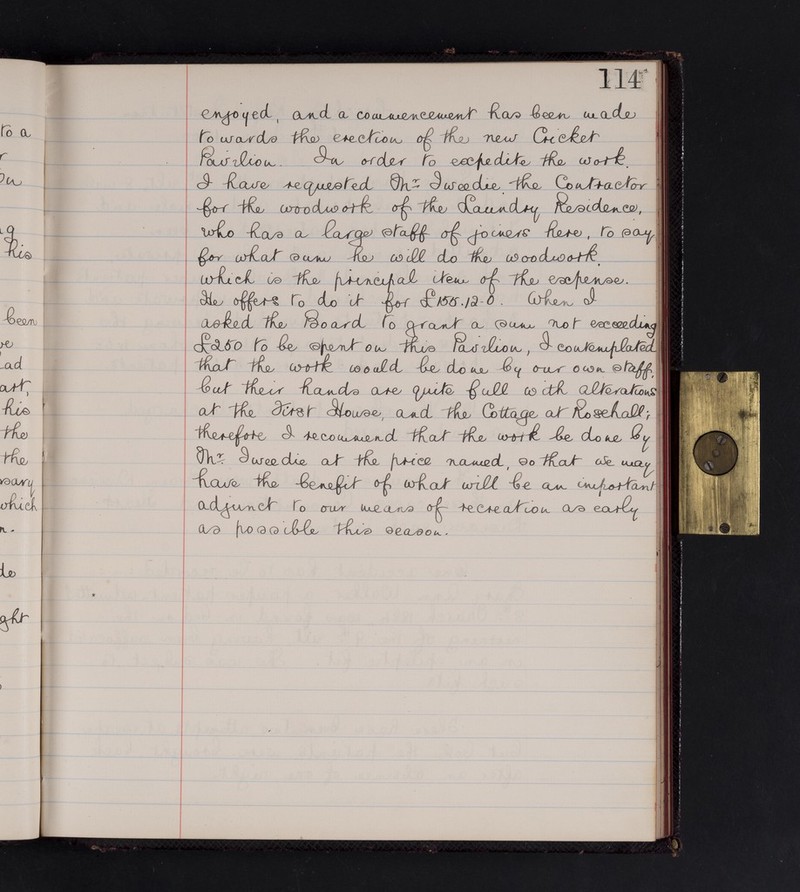 114
enjoyed, and a commencement has been made
towards the erection of the new Cricket
Pavilion. In order to expedite the work,
I have requested Mr. Tweedie, the Contractor
for the woodwork of the Laundry Residence,
who has a large staff of joiners here, to say
for what sum he will do the woodwork,
which is the principal item of the expense.
He offers to do it for £155.12-0. When I
asked the Board to grant a sum not exceeding
£250 to be spent on this Pavilion, I contemplated
that the work would be done by our own staff,
but their hands are quite full with alterations
at the First House, and the Cottage at Rosehall;
therefore I recommend that the work be done by
Mr. Tweedie at the price named, so that we may
have the benefit of what will be an important
adjunct to our means of recreation as early
as possible this season.
to a
his
been
his
the
the
which